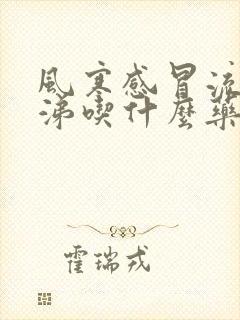 風寒感冒流
涕喫什麼藥
霍瑞戎